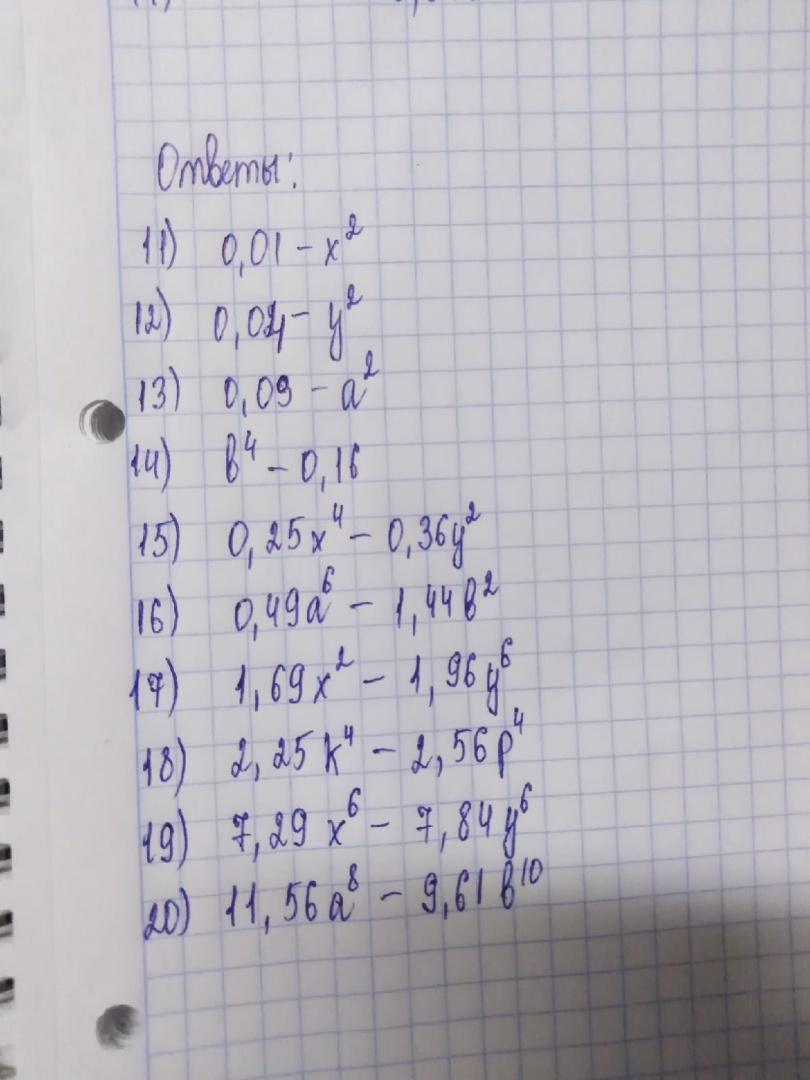 Ответы:
11) 0,01 - x²
12) 0,04 - y²
13) 0,09 - a²
14) b⁴ - 0,16
15) 0,25x⁴ - 0,36y²
16) 0,49a⁶ - 1,44b²
17) 1,69x² - 1,96y⁶
18) 2,25k⁴ - 2,56p⁴
19) 7,29x⁶ - 7,84y⁶
20) 11,56a⁸ - 9,61b¹⁰